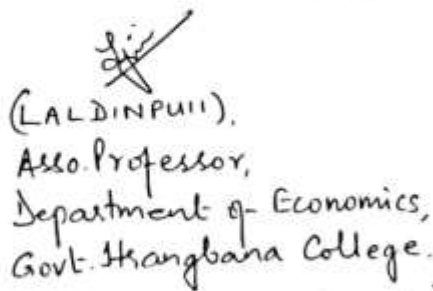 (LALDINPUII),
Asso. Professor,
Department of Economics,
Govt. Hrangbana College.